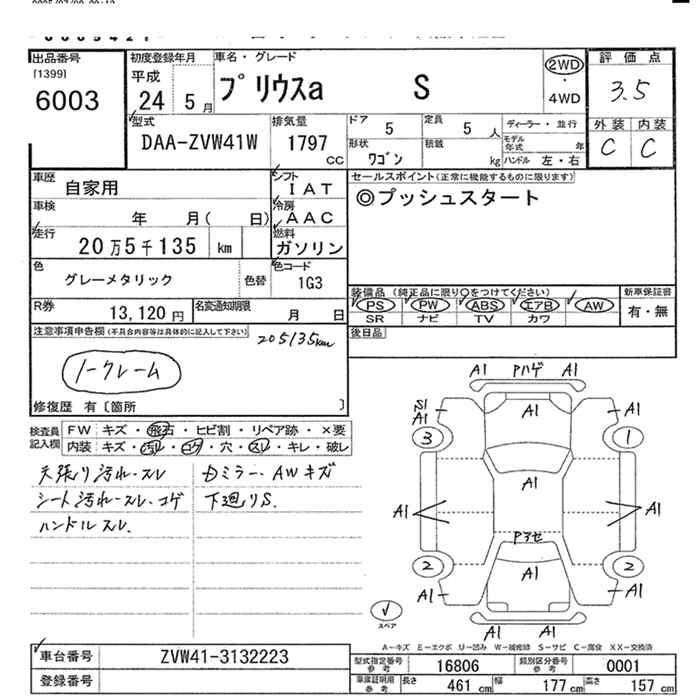 出品番号
[1399]
6003
初度登録年月
平成
24 5 月
車名・グレード
プリウスa S
2WD
・
4WD
評価点
3.5
外装 内装
C C
型式
DAA-ZVW41W
排気量
1797
CC
ドア
5
定員
5 人
形状
ワゴン
積載
kg
ディーラー・並行
モデル年式 年
ハンドル 左・右
車歴
自家用
シフト
IAT
車検
年 月( 日)
冷房
AAC
走行
20万5千135 km
燃料
ガソリン
色
グレーメタリック
色替
色コード
1G3
R券
13,120円
名変通知期限
月 日
セールスポイント(正常に機能するものに限ります)
◎プッシュスタート
装備品(純正品に限り○をつけてください)
PS PW ABS エアB AW
SR ナビ TV カワ
新車保証書
有・無
後日品
注意事項申告欄(不具合内容等は具体的に記入して下さい)
205135km
ノークレーム
修復歴 有〔箇所 〕
検査員
記入欄
FW キズ・飛石・ヒビ割・リペア跡・×要
内装 キズ・汚れ・コゲ・穴・スレ・キレ・破レ
天張り汚れ・スレ
シート汚れ・スレ・コゲ
ハンドルスレ
ミラー・AWキズ
下廻りS.
A1 Pハゲ A1
S1
A1
A1
3
1
A1
A1
A1
A1
Pアセ
2
2
A1
A1
A1
A1 A1
スペア
A-キズ E-エクボ U-凹み W-補修跡 S-サビ C-腐食 XX-交換済
車台番号
ZVW41-3132223
登録番号
型式指定番号
参考
16806
類別区分番号
参考
0001
車庫証明用
参考
長さ 461 cm 幅 177 cm 高さ 157 cm